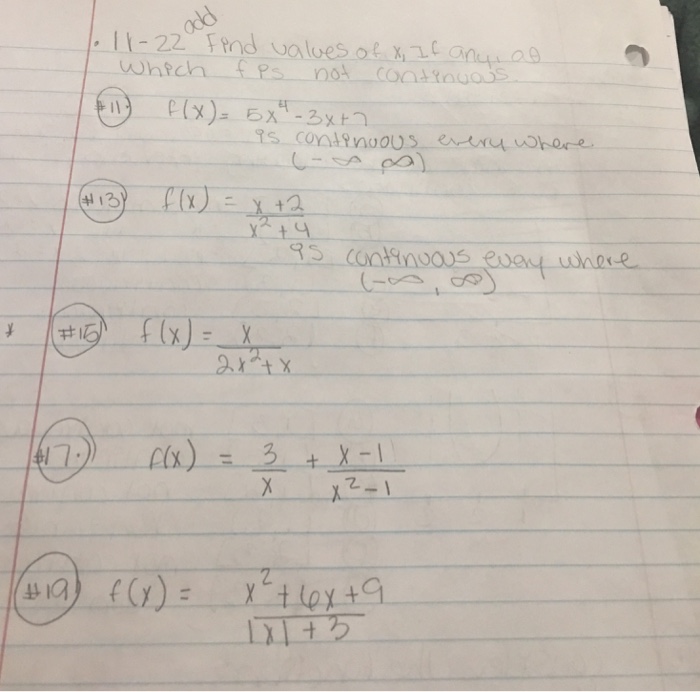 odd
• 11-22 Find values of x, If any, at
which f is not continuous.
#11. f(x) = 5x⁴ - 3x + 7
is continuous every where.
(-∞, ∞)
#13 f(x) = x + 2
x² + 4
is continuous every where
(-∞, ∞)
* #15 f(x) = x
2x² + x
#17. f(x) = 3/x + x - 1
x² - 1
#19 f(x) = x² + 6x + 9
|x| + 3